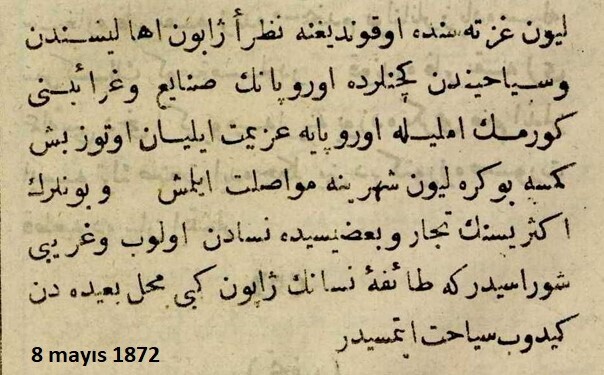 ليون غزته سنده اوقونديغنه نظراً ژاپون اهاليسندن
وسياحيندن كچنلرده اوروپانك صنايع وغرائبنى
كورمك امليله اوروپايه عزيمت ايليان اوتوز بش
كمسه بوكره ليون شهرينه مواصلت ايلمش وبونلرك
اكثريسنك تجار وبعضيسيده نسادن اولوب وغريبى
شوراسيدركه طائفهٔ نسانك ژاپون كبى محل بعيده دن
كيدوب سياحت ايتمسيدر
8 mayıs 1872